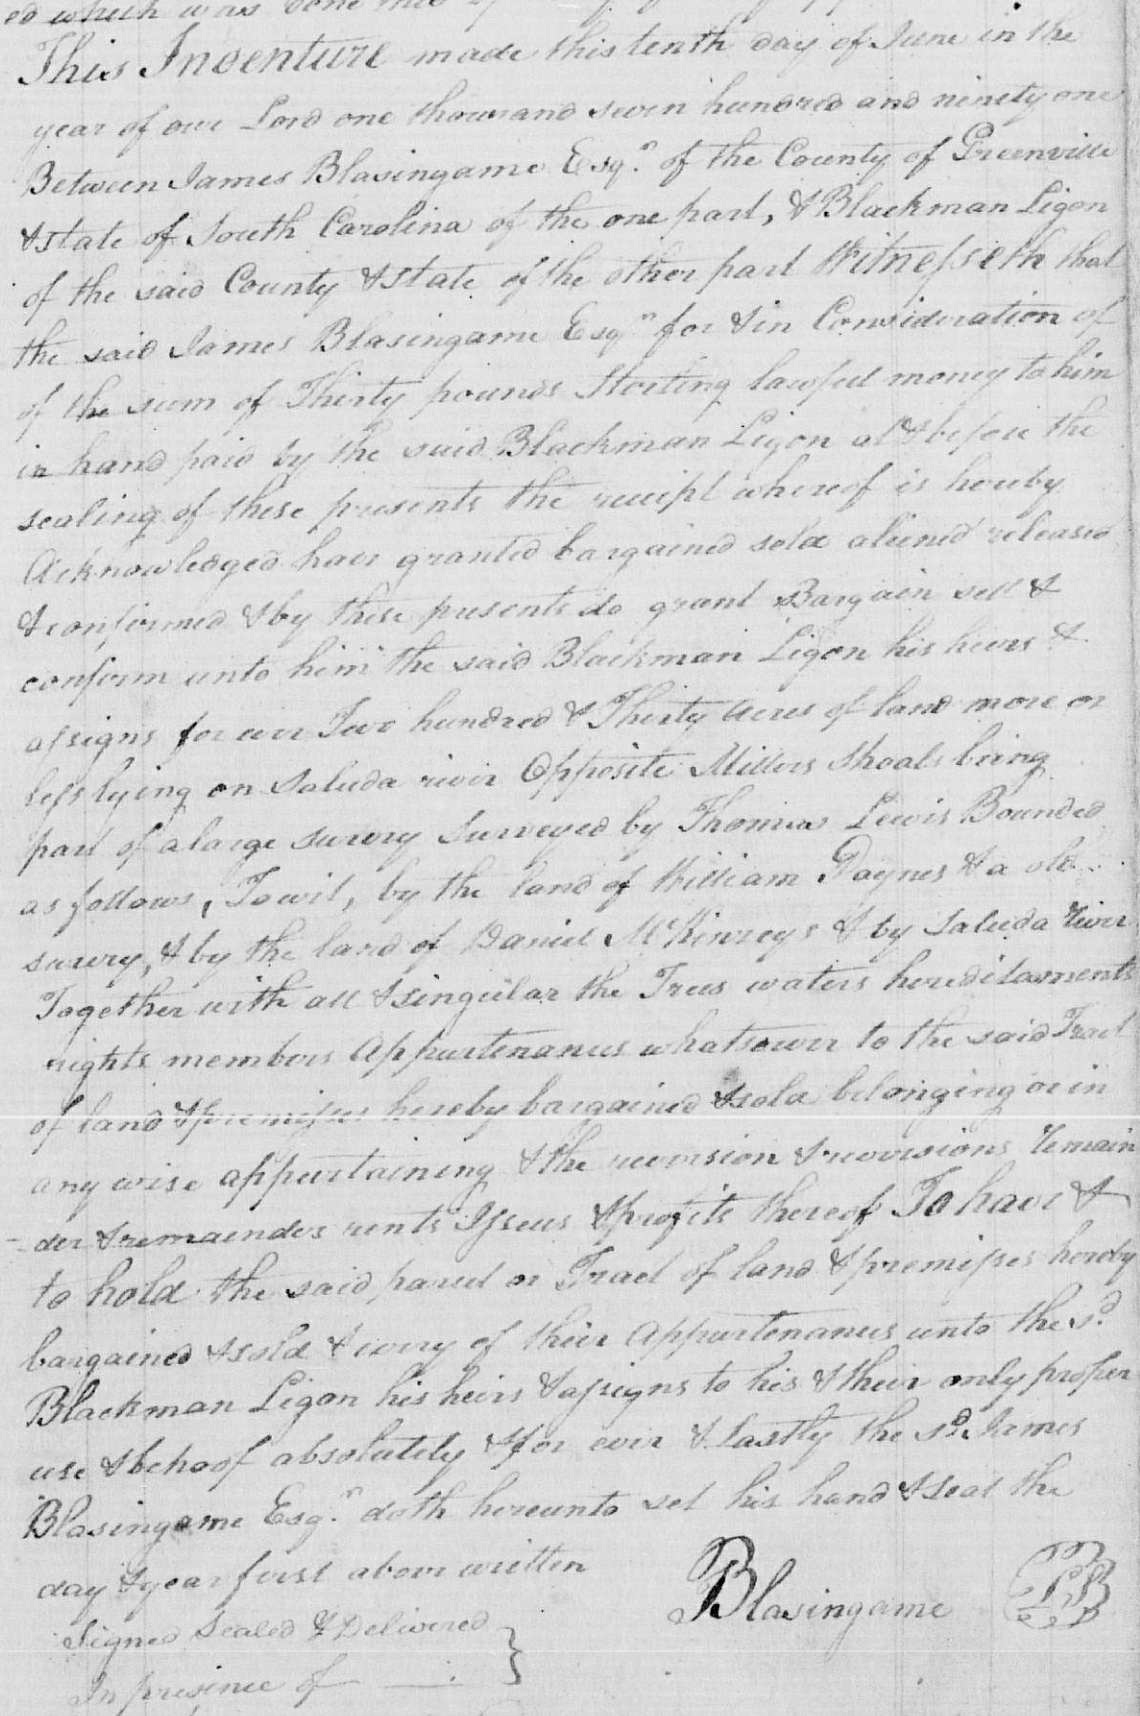 ed which was done
This Indenture made this tenth day of June in the
year of our Lord one thousand seven hundred and ninety one
Between James Blasingame Esqr. of the County of Greenville
& state of South Carolina of the one part, & Blackman Ligon
of the said County & state of the other part Witnesseth that
the said James Blasingame Esqr for & in Consideration of
of the sum of Thirty pounds Sterling lawful money to him
in hand paid by the said Blackman Ligon at & before the
sealing of these presents the receipt whereof is hereby
Acknowledged have granted bargained sold aliened released
& confirmed & by these presents do grant Bargain sell &
confirm unto him the said Blackman Ligon his heirs &
assigns for ever Two hundred & Thirty Acres of land more or
less lying on Saluda river Opposite Millers Shoals being
part of a large survey Surveyed by Thomas Lewis Bounded
as follows, Towit, by the land of William Gaynes & a old
survey, & by the land of Daniel McKinzeys & by Saluda River
Together with all & singular the Trees waters hereditaments
rights members Appurtenances whatsoever to the said Tract
of land & premisses hereby bargained & sold belonging or in
any wise appertaining & the reversion & reversions remain
der & remainders rents Issues & profits thereof To have &
to hold the said parcel or Tract of land & premises hereby
bargained & sold & every of their Appurtenances unto the sd
Blackman Ligon his heirs & assigns to his & their only proper
use & behoof absolutely & for ever & Lastly the sd. James
Blasingame Esqr. doth hereunto set his hand & seal the
day & year first above written
Blasingame
Signed Sealed & Delivered
In presince of